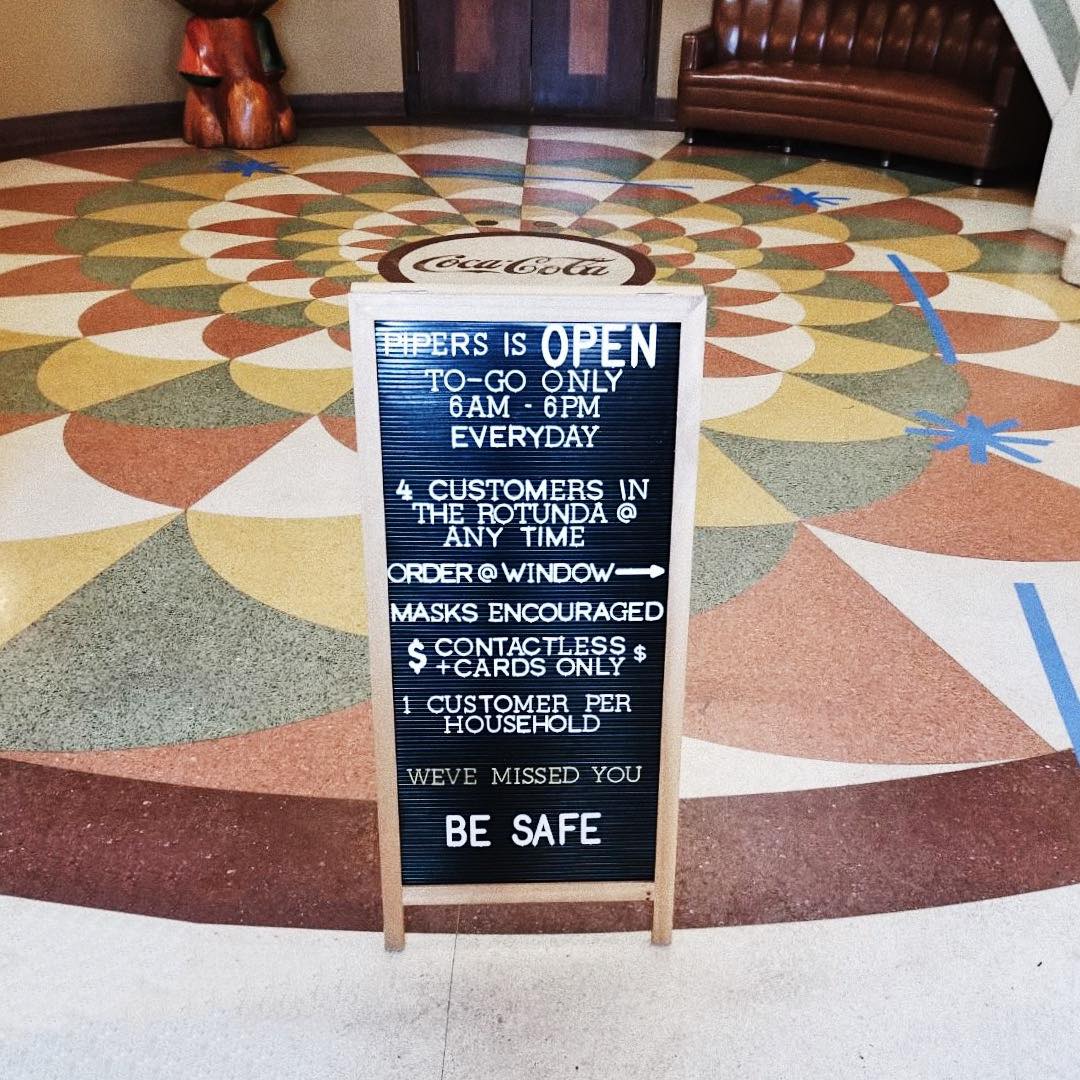 Coca-Cola
PIPERS IS OPEN
TO-GO ONLY
6AM - 6PM
EVERYDAY
4 CUSTOMERS IN
THE ROTUNDA @
ANY TIME
ORDER @ WINDOW →
MASKS ENCOURAGED
$ CONTACTLESS $
+CARDS ONLY
1 CUSTOMER PER
HOUSEHOLD
WEVE MISSED YOU
BE SAFE